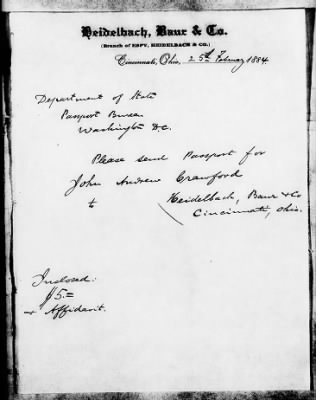 Heidelbach, Baur & Co.
(Branch of ESPY, HEIDELBACH & CO.)
Cincinnati, Ohio, 25th February 1884
Department of State
Passport Bureau
Washington D.C.
Please send Passport for
John Andrew Crawford
to
Heidelbach, Baur & Co
Cincinnati, Ohio.
Inclosed:
$5.=
+ Affidavit.